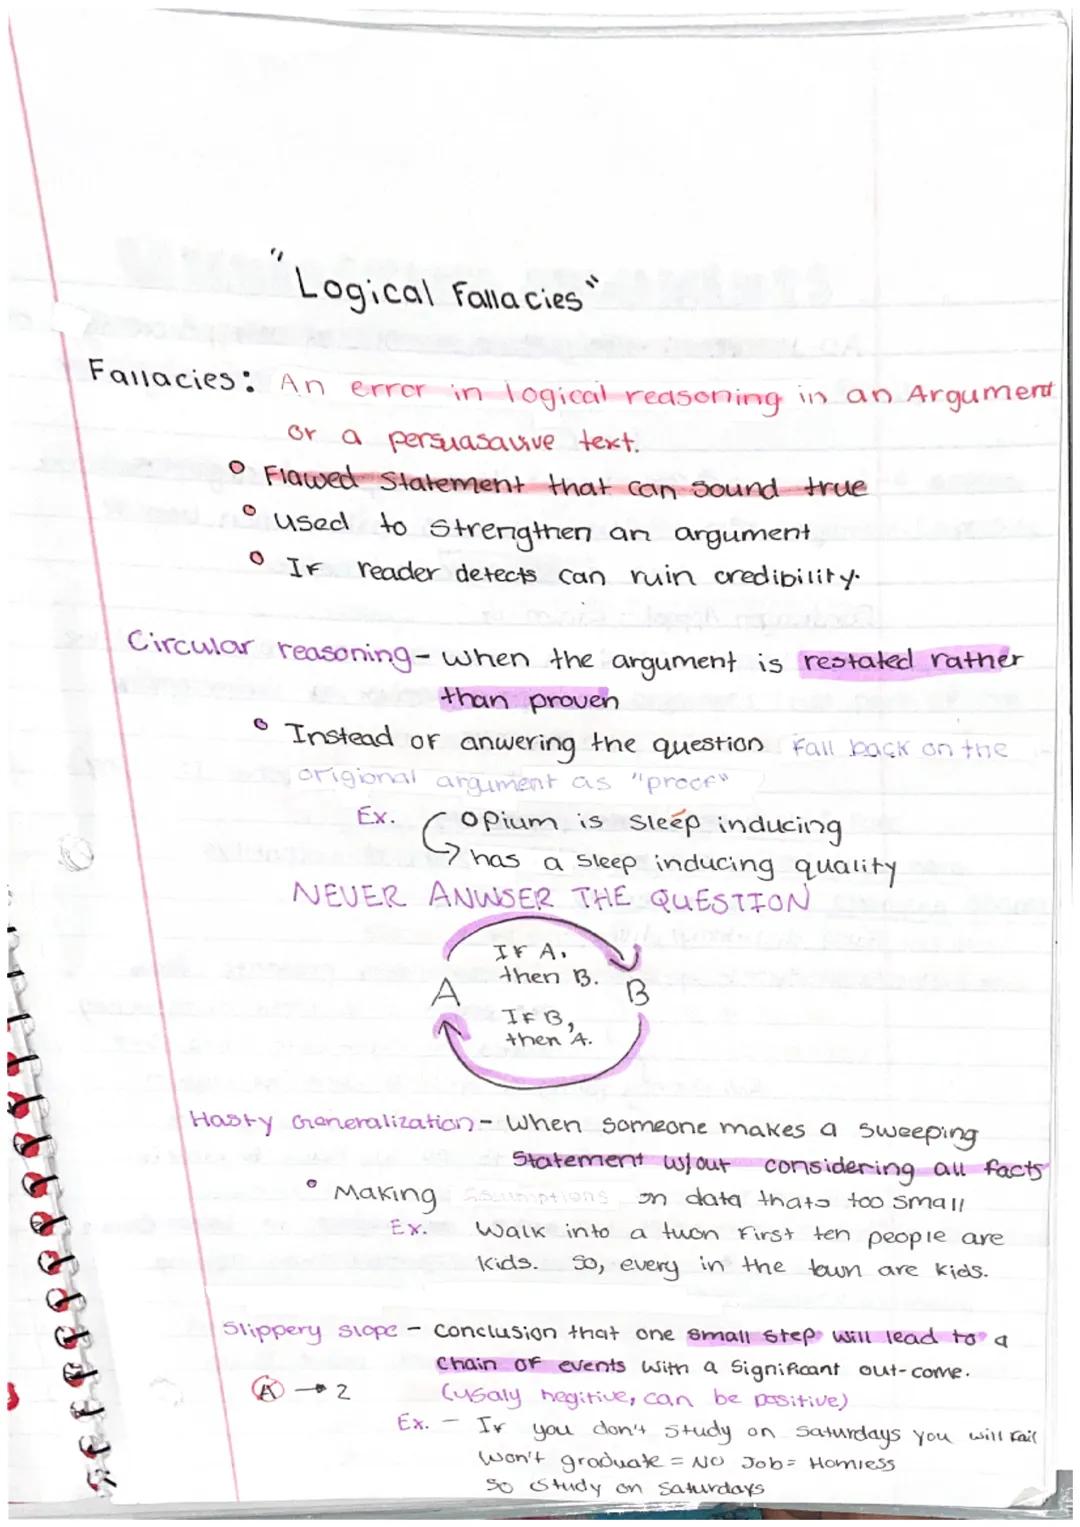 "Logical Fallacies"
Fallacies: An error in logical reasoning in an Argument
or a persuasavive text.
Flawed Statement that can sound true
used to strengthen an argument
If reader detects can ruin credibility.
Circular reasoning- when the argument is restated rather
than proven
Instead of anwering the question Fall back on the
origional argument as "proof"
Ex. Opium is sleep inducing
has a sleep inducing quality
NEVER ANWSER THE QUESTION
If A,
then B.
A B
If B,
then A.
Hasty Generalization- When someone makes a sweeping
Statement w/out considering all facts
Making Assumptions on data thats too small
Ex. Walk into a twon First ten people are
kids. So, every in the town are kids.
Slippery slope - Conclusion that one small step will lead to a
chain of events with a significant out-come.
A → 2 (usaly negitive, can be positive)
Ex. - If you don't study on Saturdays you will Fail
Won't graduate = No Job = Homless
So Study on Saturdays